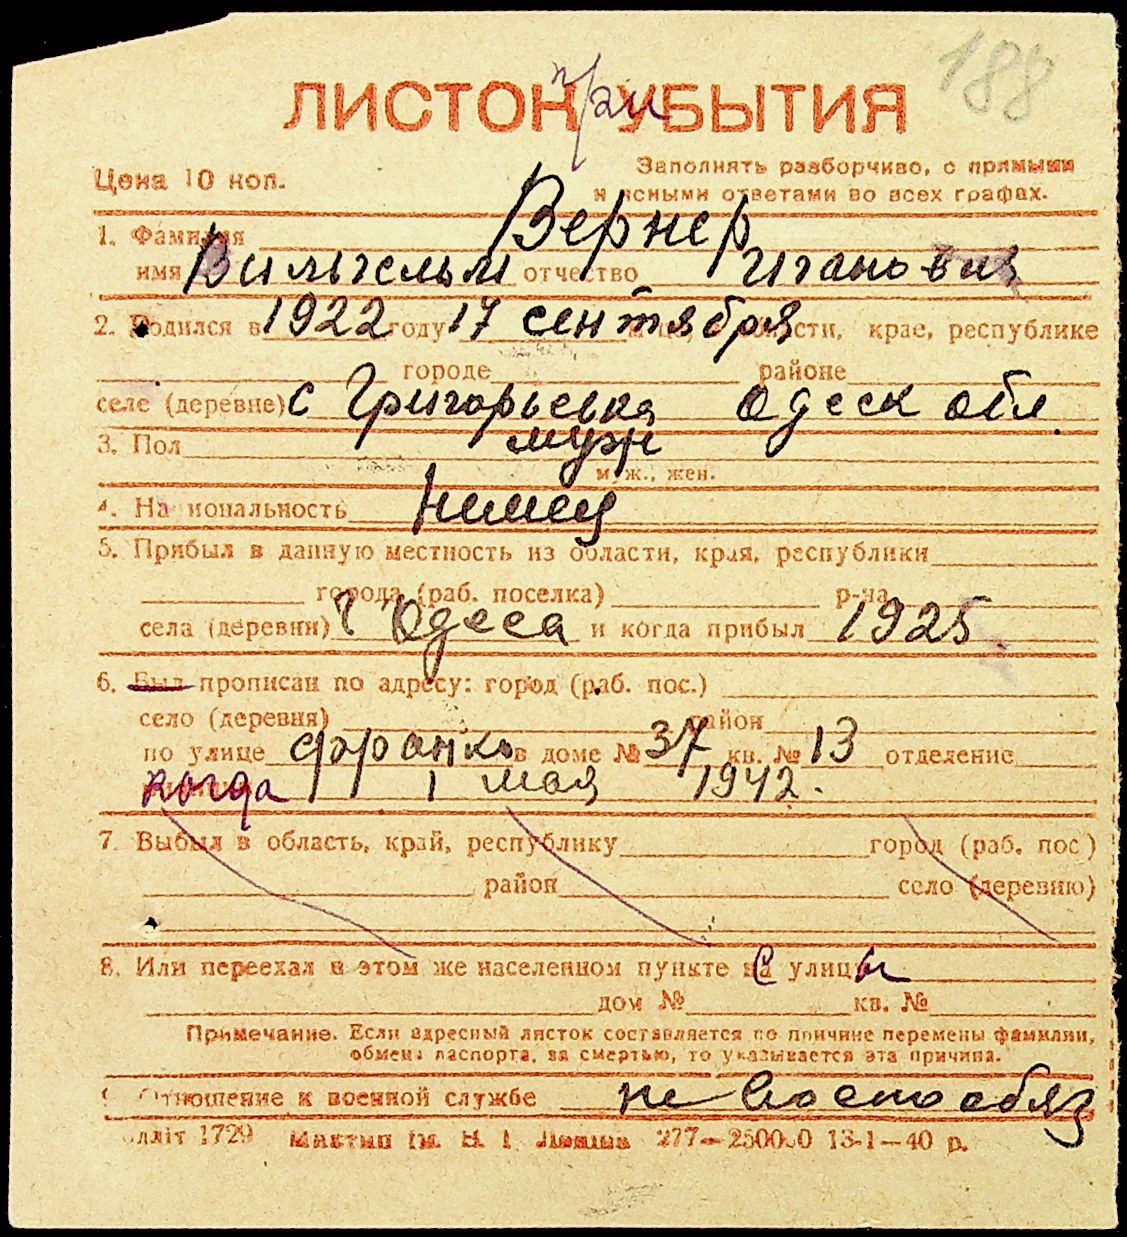 188
ЛИСТОК при УБЫТИЯ
Цена 10 коп.
Заполнять разборчиво, с прямыми
и ясными ответами во всех графах.
1. Фамилия Вернер
имя Вильгельм отчество Иванович
2. Родился в 1922 году 17 сентября области, крае, республике
городе районе
селе (деревне) с Григорьевка Одеск обл.
3. Пол муж
муж., жен.
4. Национальность Немец
5. Прибыл в данную местность из области, края, республики
города (раб. поселка) р-на
села (деревни) г Одеса и когда прибыл 1925
6. Был прописан по адресу: город (раб. пос.)
село (деревня) район
по улице Франко в доме № 37 кв. № 13 отделение
когда 1 мая 1942.
7. Выбыл в область, край, республику город (раб. пос.)
район село (деревню)
8. Или переехал в этом же населенном пункте с улицы
дом № кв. №
Примечание. Если адресный листок составляется по причине перемены фамилии,
обмена паспорта, за смертью, то указывается эта причина.
9. Отношение к военной службе не военообяз
1729 им. 277—250000 13-1—40 р.